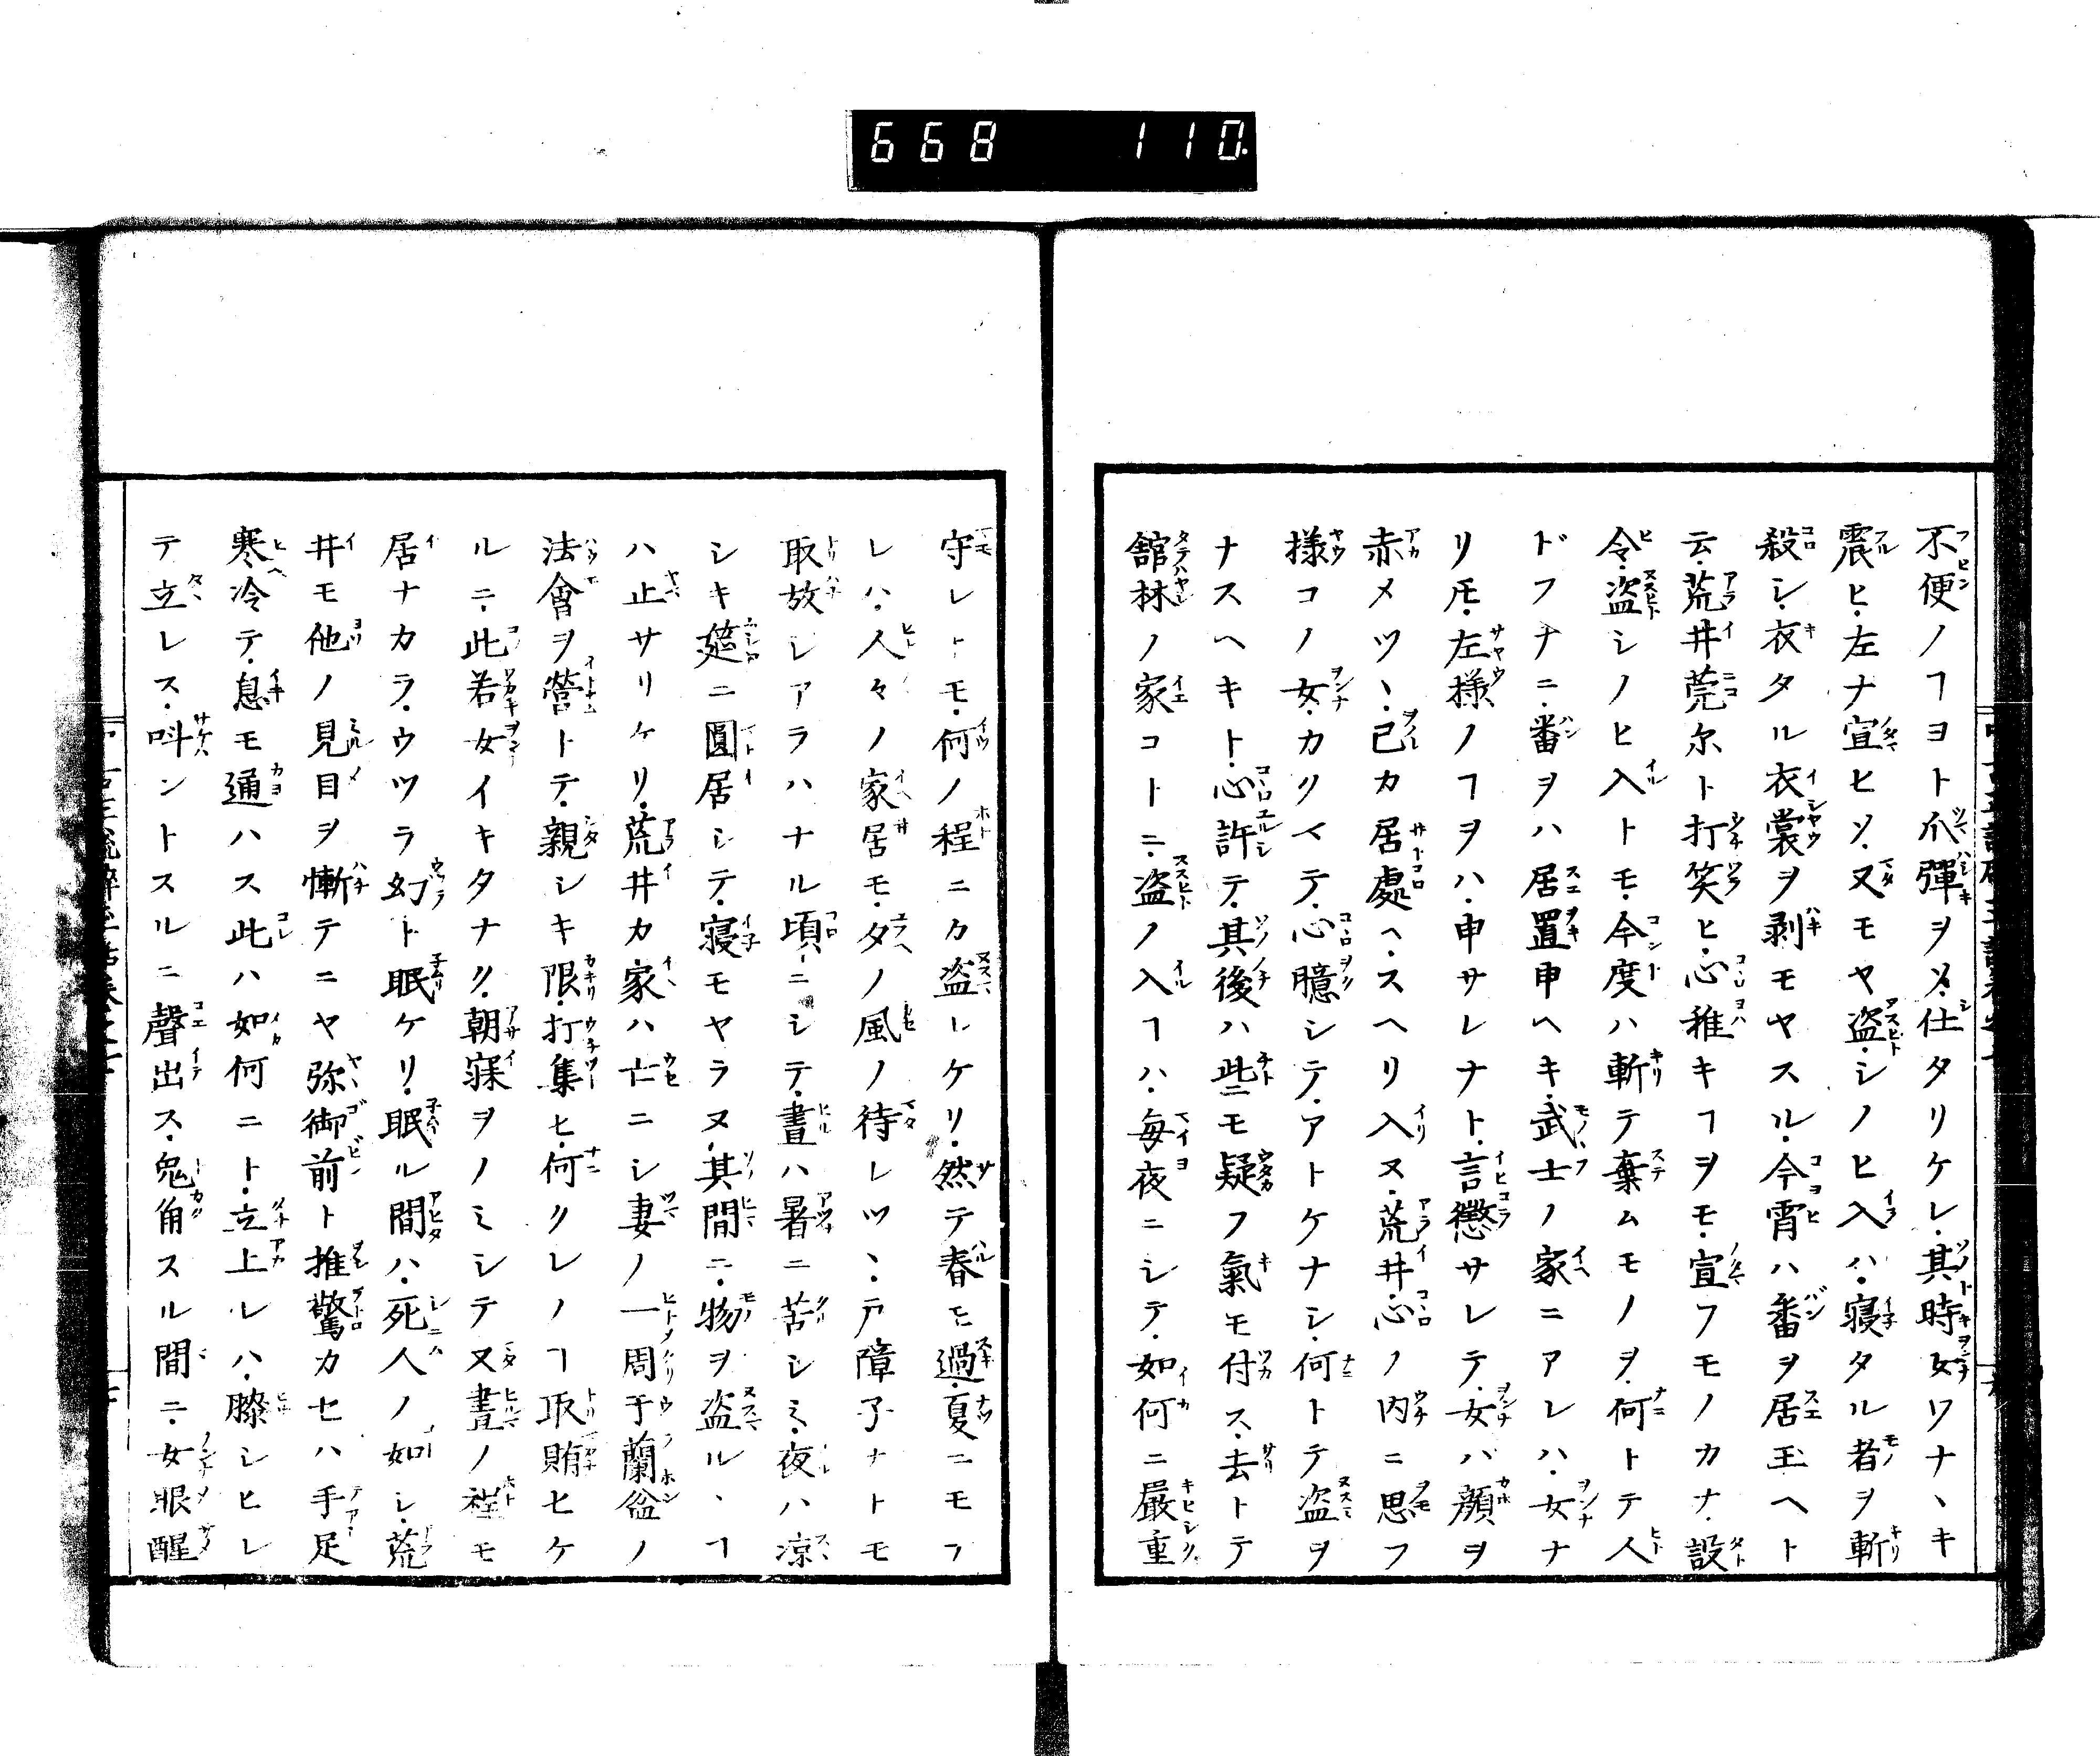 668 110.
不便ノヿヨト爪彈ヲメ仕タリケレ.其時女ワナヽキ
震ヒ.左ナ宣ヒソ.又モヤ盗.シノヒ入ハ.寝タル者ヲ斬
殺シ.衣タル衣裳ヲ剥モヤスル.今宵ハ番ヲ居玉ヘト
云.荒井莞尓ト打笑ヒ.心稚キヿヲモ.宣フモノカナ.設
令.盗シノヒ入トモ.今度ハ斬テ棄ムモノヲ.何トテ人
ドフナニ.番ヲハ居置申ヘキ.武士ノ家ニアレハ.女ナ
リ𪜈.左様ノヿヲハ.申サレナト.言懲サレテ.女バ顔ヲ
赤メツヽ.己カ居處ヘ.スヘリ入ヌ.荒井心ノ内ニ思フ
様コノ女.カクイテ.心臆シテ.アトケナシ.何トテ盗ヲ
ナスヘキト.心許テ.其後ハ些モ疑フ氣モ付ス.去トテ
舘林ノ家コトニ.盗ノ入ヿハ.毎夜ニシテ.如何ニ嚴重
守レトモ.何ノ程ニカ盗レケリ.然テ春モ過.夏ニモフ
レハ.人々ノ家居モ.夕ノ風ノ待レツヽ.戸障子ナトモ
取放シアラハナル頃ニシテ.晝ハ暑ニ苦シミ.夜ハ凉
シキ筵ニ圓居シテ.寝モヤラヌ.其間ニ.物ヲ盗ルヽヿ
ハ止サリケリ.荒井カ家ハ亡ニシ妻ノ一周于蘭盆ノ
法會ヲ營トテ.親シキ限.打集ヒ.何クレノヿ取賄セケ
ルニ.此若女イキタナク.朝寐ヲノミシテ又晝ノ程モ
居ナカラ.ウツラ幻ト眠ケリ.眠ル間ハ.死人ノ如シ.荒
井モ他ノ見目ヲ慚テニヤ弥御前ト推驚カセハ手足
寒冷テ.息モ通ハス此ハ如何ニト.立上レハ.膝シヒレ
テ立レス.呌ントスルニ聲出ス.兎角スル間ニ.女眠醒